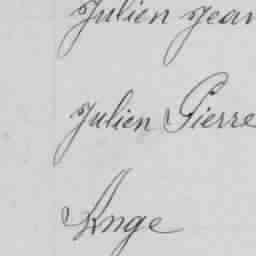 Julien Jean
Julien Pierre
Ange